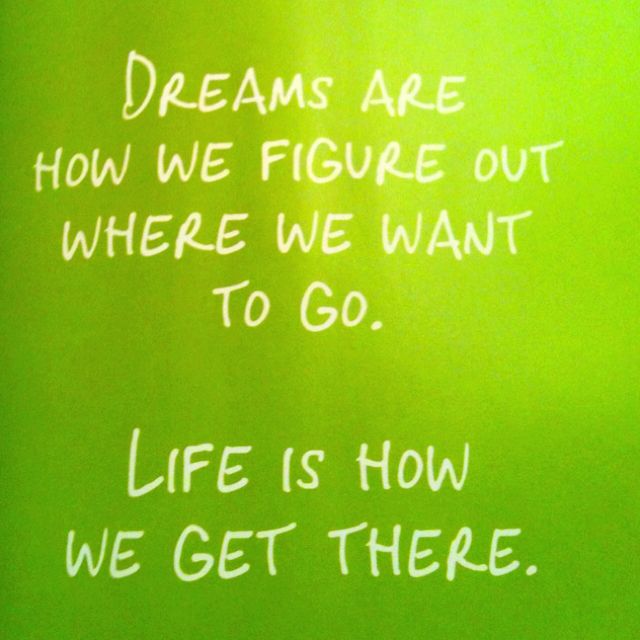 DREAMS ARE
HOW WE FIGURE OUT
WHERE WE WANT
TO GO.
LIFE IS HOW
WE GET THERE.